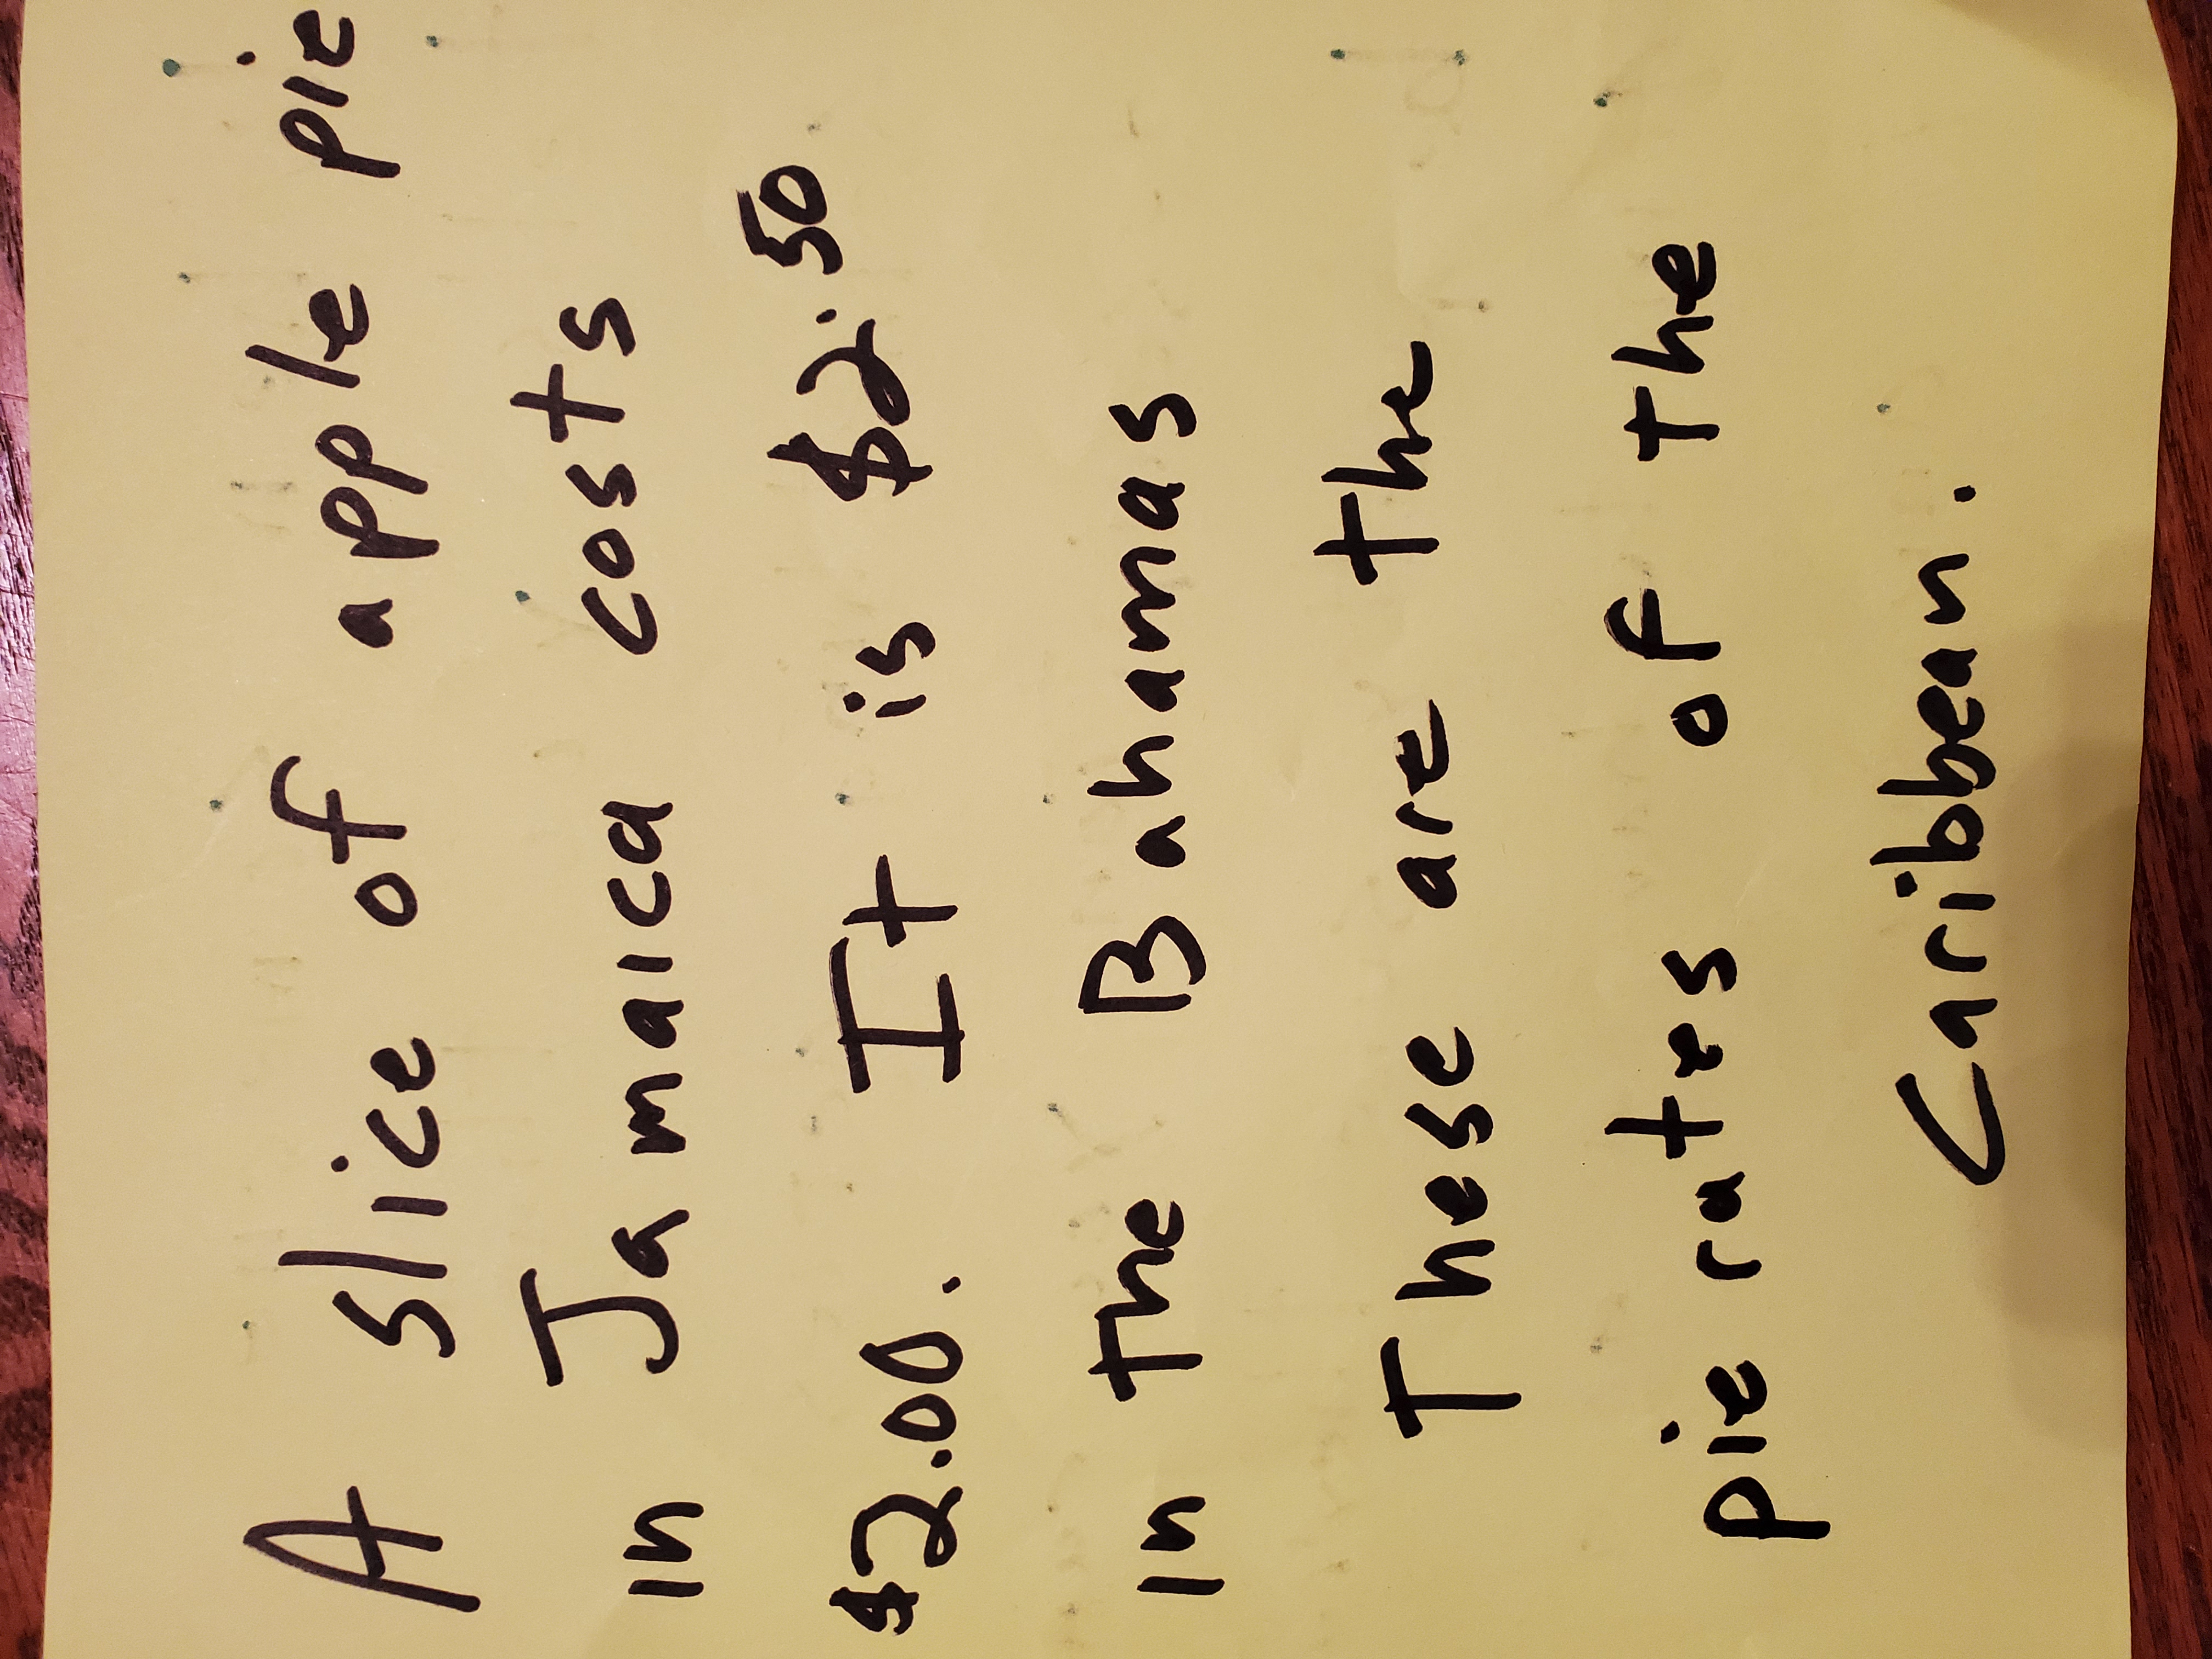 A slice of apple pie
in Jamaica costs
$2.00. It is $2.50
in the Bahamas
These are the
pie rates of the
Caribbean.